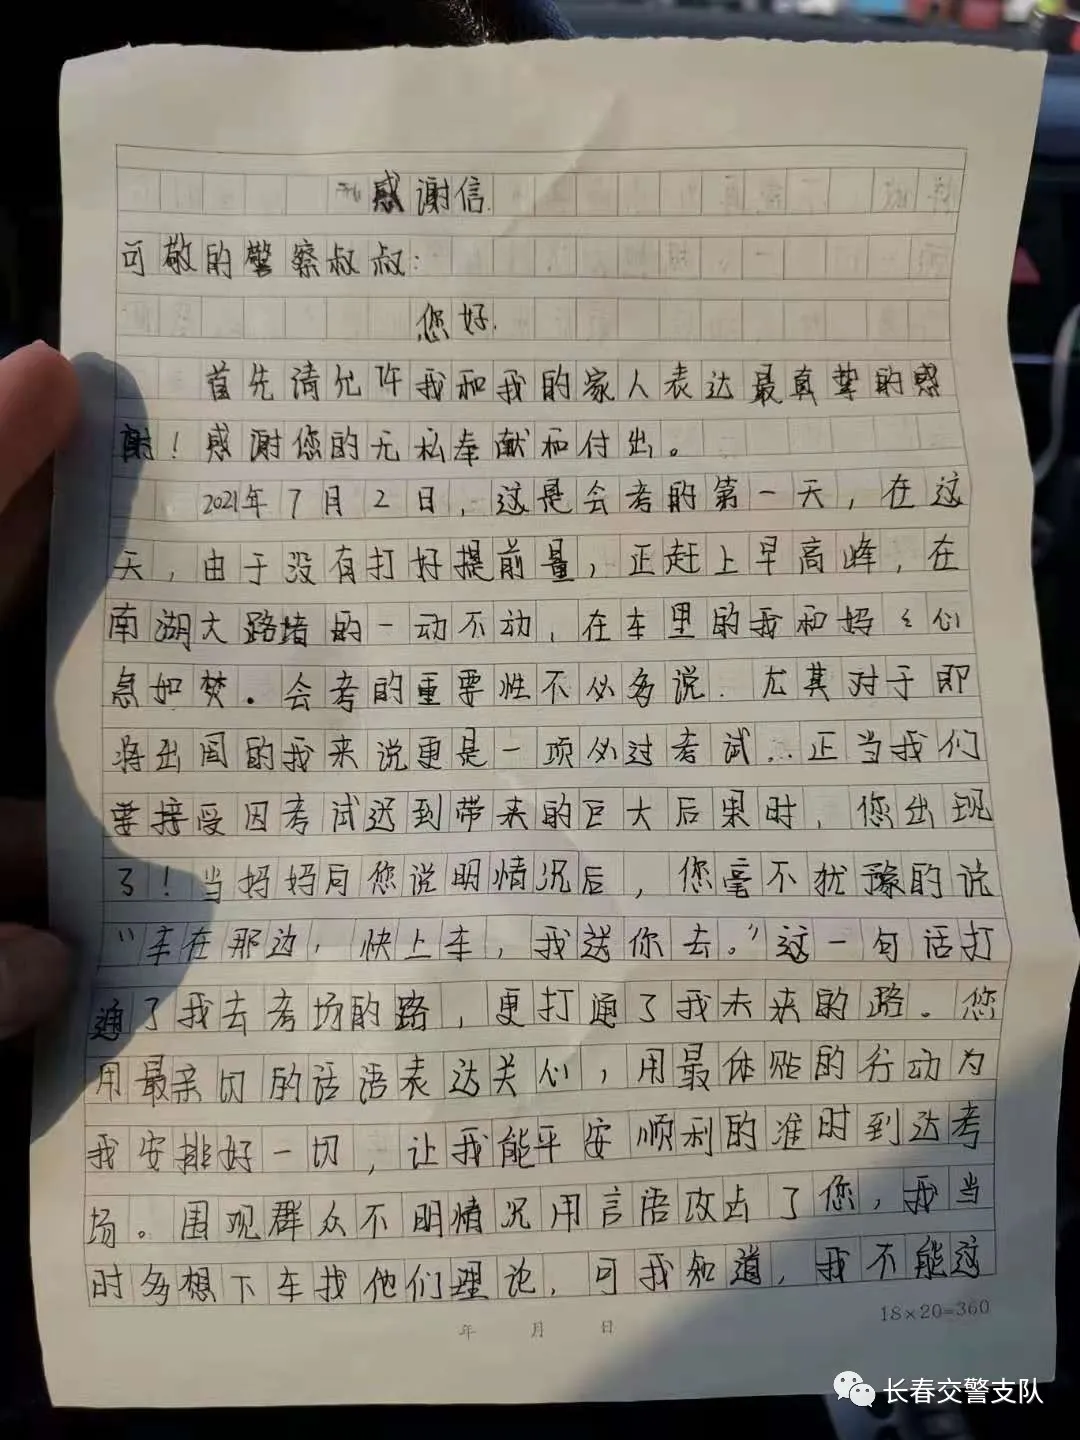 感谢信.
可敬的警察叔叔:
您好.
首先请允许我和我的家人表达最真挚的感
谢！感谢您的无私奉献和付出。
2021年7月2日，这是会考的第一天，在这
天，由于没有打好提前量，正赶上早高峰，在
南湖大路堵的一动不动，在车里的我和妈々心
急如焚。会考的重要性不必多说.尤其对于即
将出国的我来说更是一项必过考试...正当我们
要接受因考试迟到带来的巨大后果时，您出现
了！当妈妈向您说明情况后，您毫不犹豫的说
“车在那边，快上车，我送你去。”这一句话打
通了我去考场的路，更打通了我未来的路。您
用最亲切的话语表达关心，用最体贴的行动为
我安排好一切，让我能平安顺利的准时到达考
场。围观群众不明情况用言语攻击了您，我当
时多想下车找他们理论，可我知道，我不能这
年 月 日
18×20=360
长春交警支队